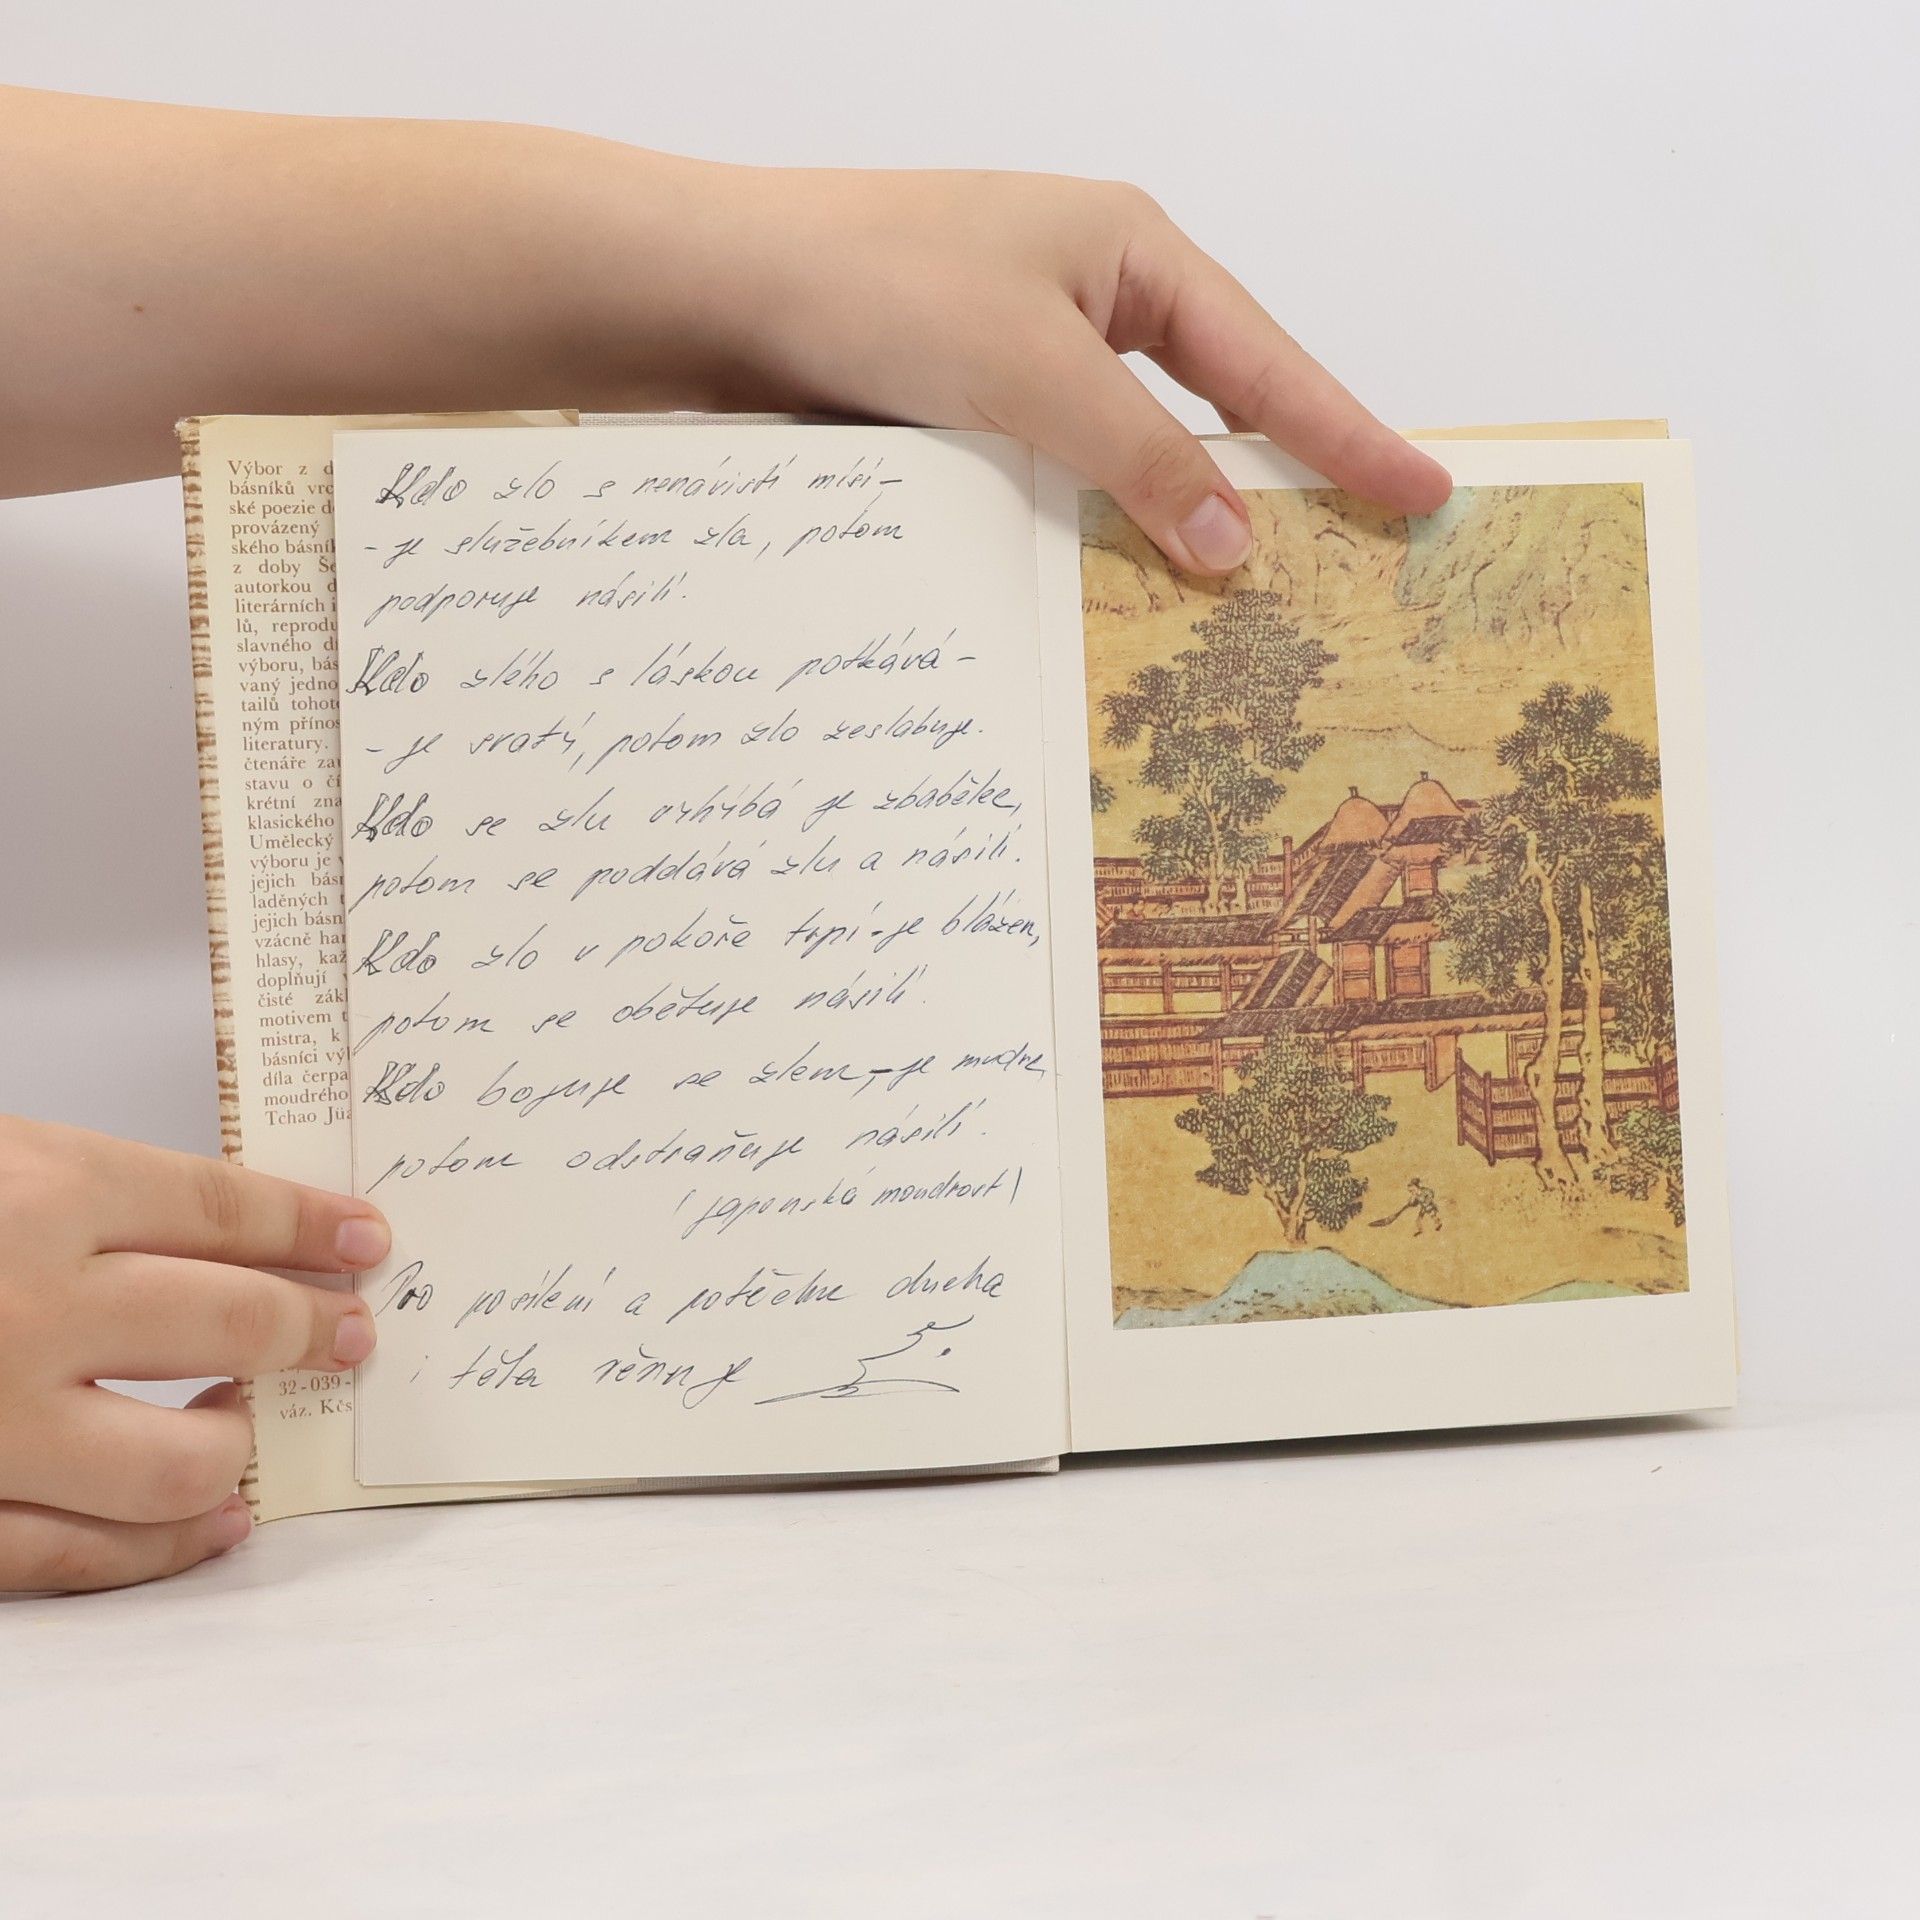 Výbor z d
básníků vrc
ské poezie d
provázený
ského básník
z doby Še
autorkou d
literárních i
lů, reprodu
slavného d
výboru, bás
vaný jedno
tailů tohoto
ným přínos
literatury.
čtenáře zau
stavu o čí
krétní zna
klasického
Umělecký
výboru je v
jejich básn
laděných t
jejich básn
vzácně har
hlasy, kaž
doplňují v
čisté zákl
motivem t
mistra, k
básníci vý
díla čerpa
moudrého
Tchao Jüa
32-039-
váz. Kčs
Kdo zlo s nenávistí mísí-
- je služebníkem zla, potom
podporuje násilí.
Kdo zlého s láskou potkává -
- je svatý, potom zlo zeslabuje.
Kdo se zlu vyhýbá je zbabělec,
potom se poddává zlu a násilí.
Kdo zlo v pokoře trpí-je blázen,
potom se obětuje násilí.
Kdo bojuje se zlem,-je mudrc
potom odstraňuje násilí.
(japonská moudrost)
Pro posílení a potěchu ducha
i těla věnuje